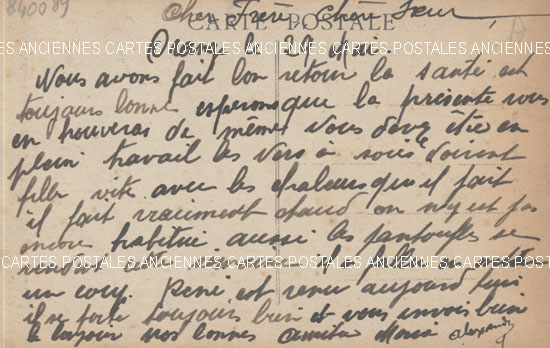 840089
Cher Frère, Chère Sœur,
CARTE POSTALE
le 29 Mai
CARTES POSTALES ANCIENNES CARTES POSTALES ANCIENNES CARTES POSTALES ANCIENNES
Nous avons fait bon retour la santé est
toujours bonne esperons que la présente vous
en trouveras de même Vous devez être en
plein travail les vers à soies doivent
filer vite avec les chaleurs qu'il fait
il fait vraiment chaud on n'y est pas
encore habitué aussi les pantoufles se
CARTES POSTALES ANCIENNES CARTES POSTALES ANCIENNES CARTES POSTALES ANCIENNES
un coup. René est venu aujourd'hui
il se porte toujours bien et vous envois bien
le bonjour vos bonnes amitiés Maria Alexandre